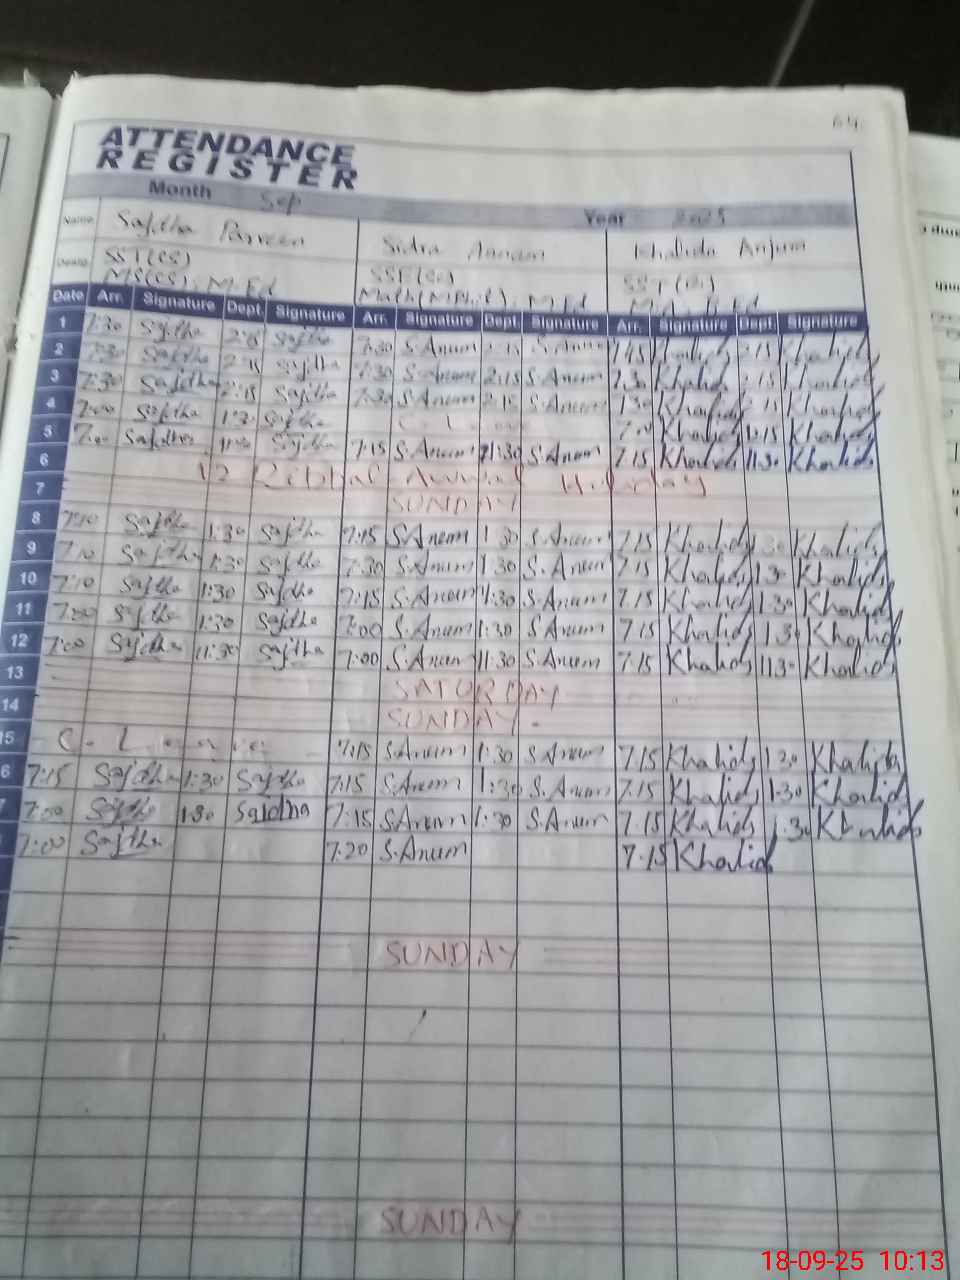 64
ATTENDANCE
REGISTER
Month Sep Year 2025
Name Sajdha Parveen Sidra Annam Khalida Anjum
SST(CS) SSE(Sc) SST(Bi)
MS(CS), M.Ed Math(MPhil), M.Ed M.Ed
Date Arr. Signature Dept. Signature Arr. Signature Dept. Signature Arr. Signature Dept. Signature
1 7:30 Sajdha 2:15 Sajdha 7:30 S.Anum 2:15 S.Anum 7.45 Khalida 2:15 Khalida
2 7:30 Sajdha 2:15 Sajdha 7:30 S.Anum 2:15 S.Anum 7.30 Khalida 2:15 Khalida
3 7:30 Sajdha 2:15 Sajdha 7:30 S.Anum 2:15 S.Anum 7.30 Khalida Khalida
4 7:00 Sajdha 1:30 Sajdha C. Leave 7.00 Khalida Khalida
5 7:00 Sajdha 11:30 Sajdha 7:15 S.Anum 11:30 S.Anum 7.15 Khalida 11.30 Khalida
6 12 Ribbul Awwal Holiday
7 SUNDAY
8 7:10 Sajdha 1:30 Sajdha 7:15 S.Anum 1:30 S.Anum 7.15 Khalida 1.30 Khalida
9 7:10 Sajdha 1:30 Sajdha 7:30 S.Anum 1:30 S.Anum 7.15 Khalida 1.30 Khalida
10 7:10 Sajdha 1:30 Sajdha 7:15 S.Anum 1:30 S.Anum 7.15 Khalida 1.30 Khalida
11 7:00 Sajdha 1:30 Sajdha 7:00 S.Anum 1:30 S.Anum 7.15 Khalida 1.30 Khalida
12 7:00 Sajdha 11:30 Sajdha 7:00 S.Anum 11:30 S.Anum 7.15 Khalida 11.30 Khalida
13 SATURDAY
14 SUNDAY
5 C. Leave 7:15 S.Anum 1:30 S.Anum 7.15 Khalida 1.30 Khalida
6 7:15 Sajdha 1:30 Sajdha 7:15 S.Anum 1:30 S.Anum 7.15 Khalida 1.30 Khalida
7:00 Sajdha 1:30 Sajdha 7:15 S.Anum 1:30 S.Anum 7.15 Khalida 1.30 Khalida
7:00 Sajdha 7:20 S.Anum 7.15 Khalida
SUNDAY
SUNDAY
18-09-25 10:13